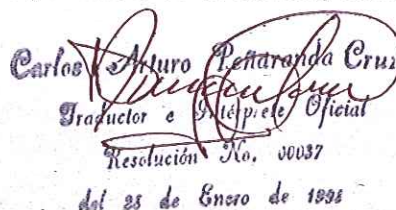 Carlos Arturo Peñaranda Cruz
Traductor e Intérprete Oficial
Resolución No. 00037
del 28 de Enero de 1998